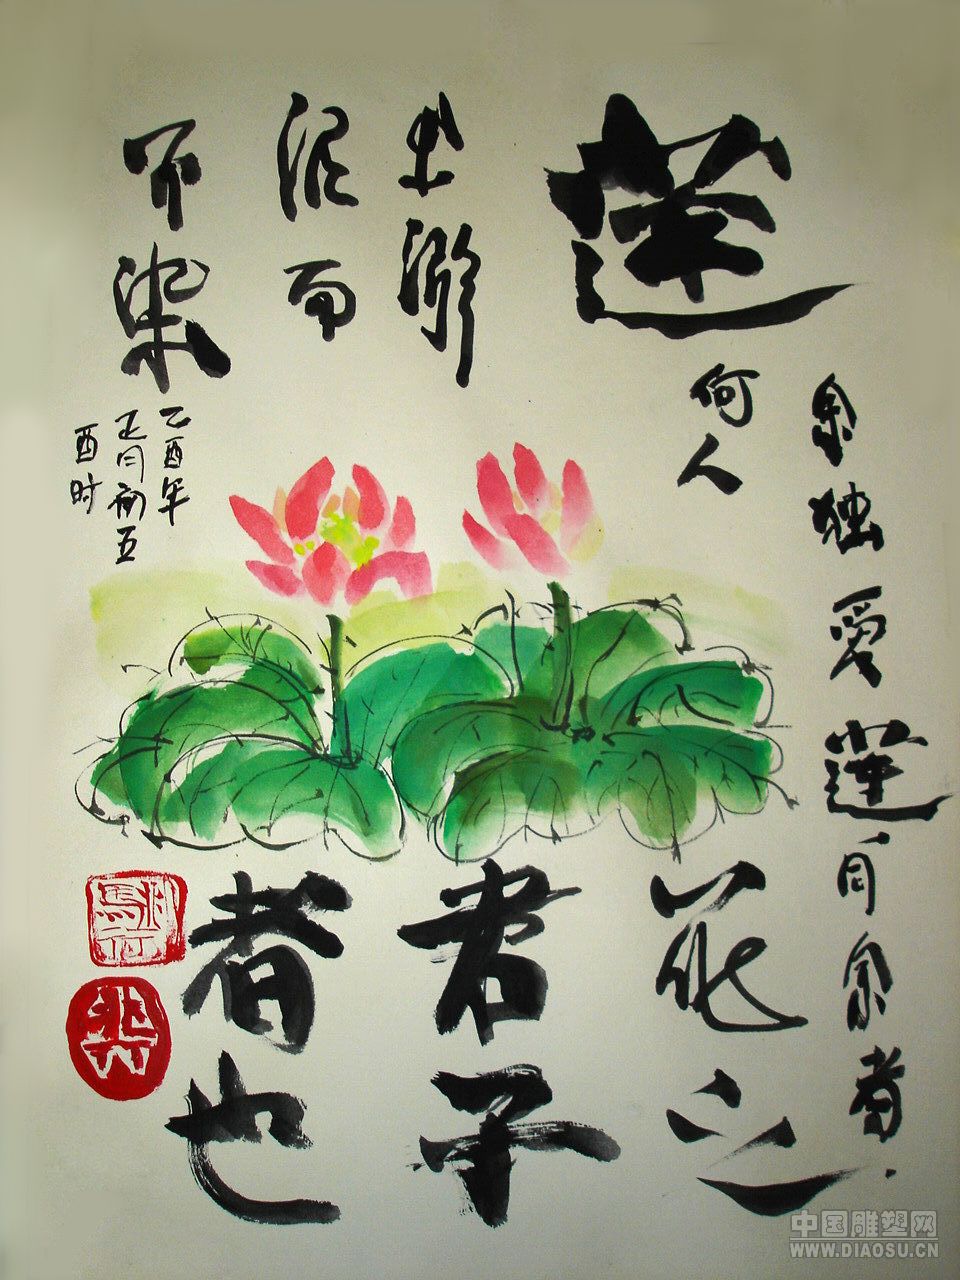 莲
花之
君子
者也
余独爱莲同余者
何人
出淤
泥而
不染
乙酉年
正月初五
酉时
中国雕塑网
WWW.DIAOSU.CN